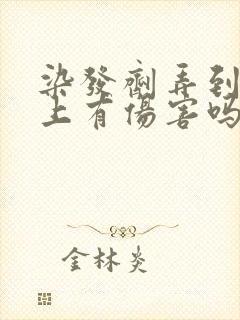 染發劑弄到
上有傷害嗎
金林炎